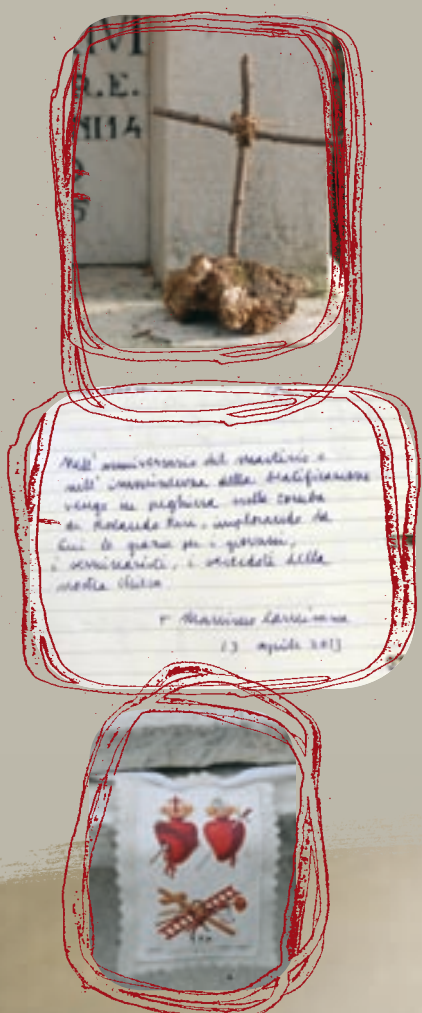 IVI
R.E.
NI14
Nell'anniversario del martirio e
nell'imminenza della beatificazione
vengo in preghiera sulla tomba
di Rolando Rivi, implorando da
Lui le grazie per i giovani,
i seminaristi, i sacerdoti della
nostra Chiesa
+ Massimo Camisasca
13 aprile 2013